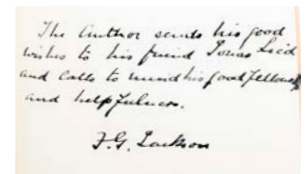 The Author sends his good
wishes to his friend Lied
and calls to mind his good fellows
and helpfulness.
F. G. Jackson